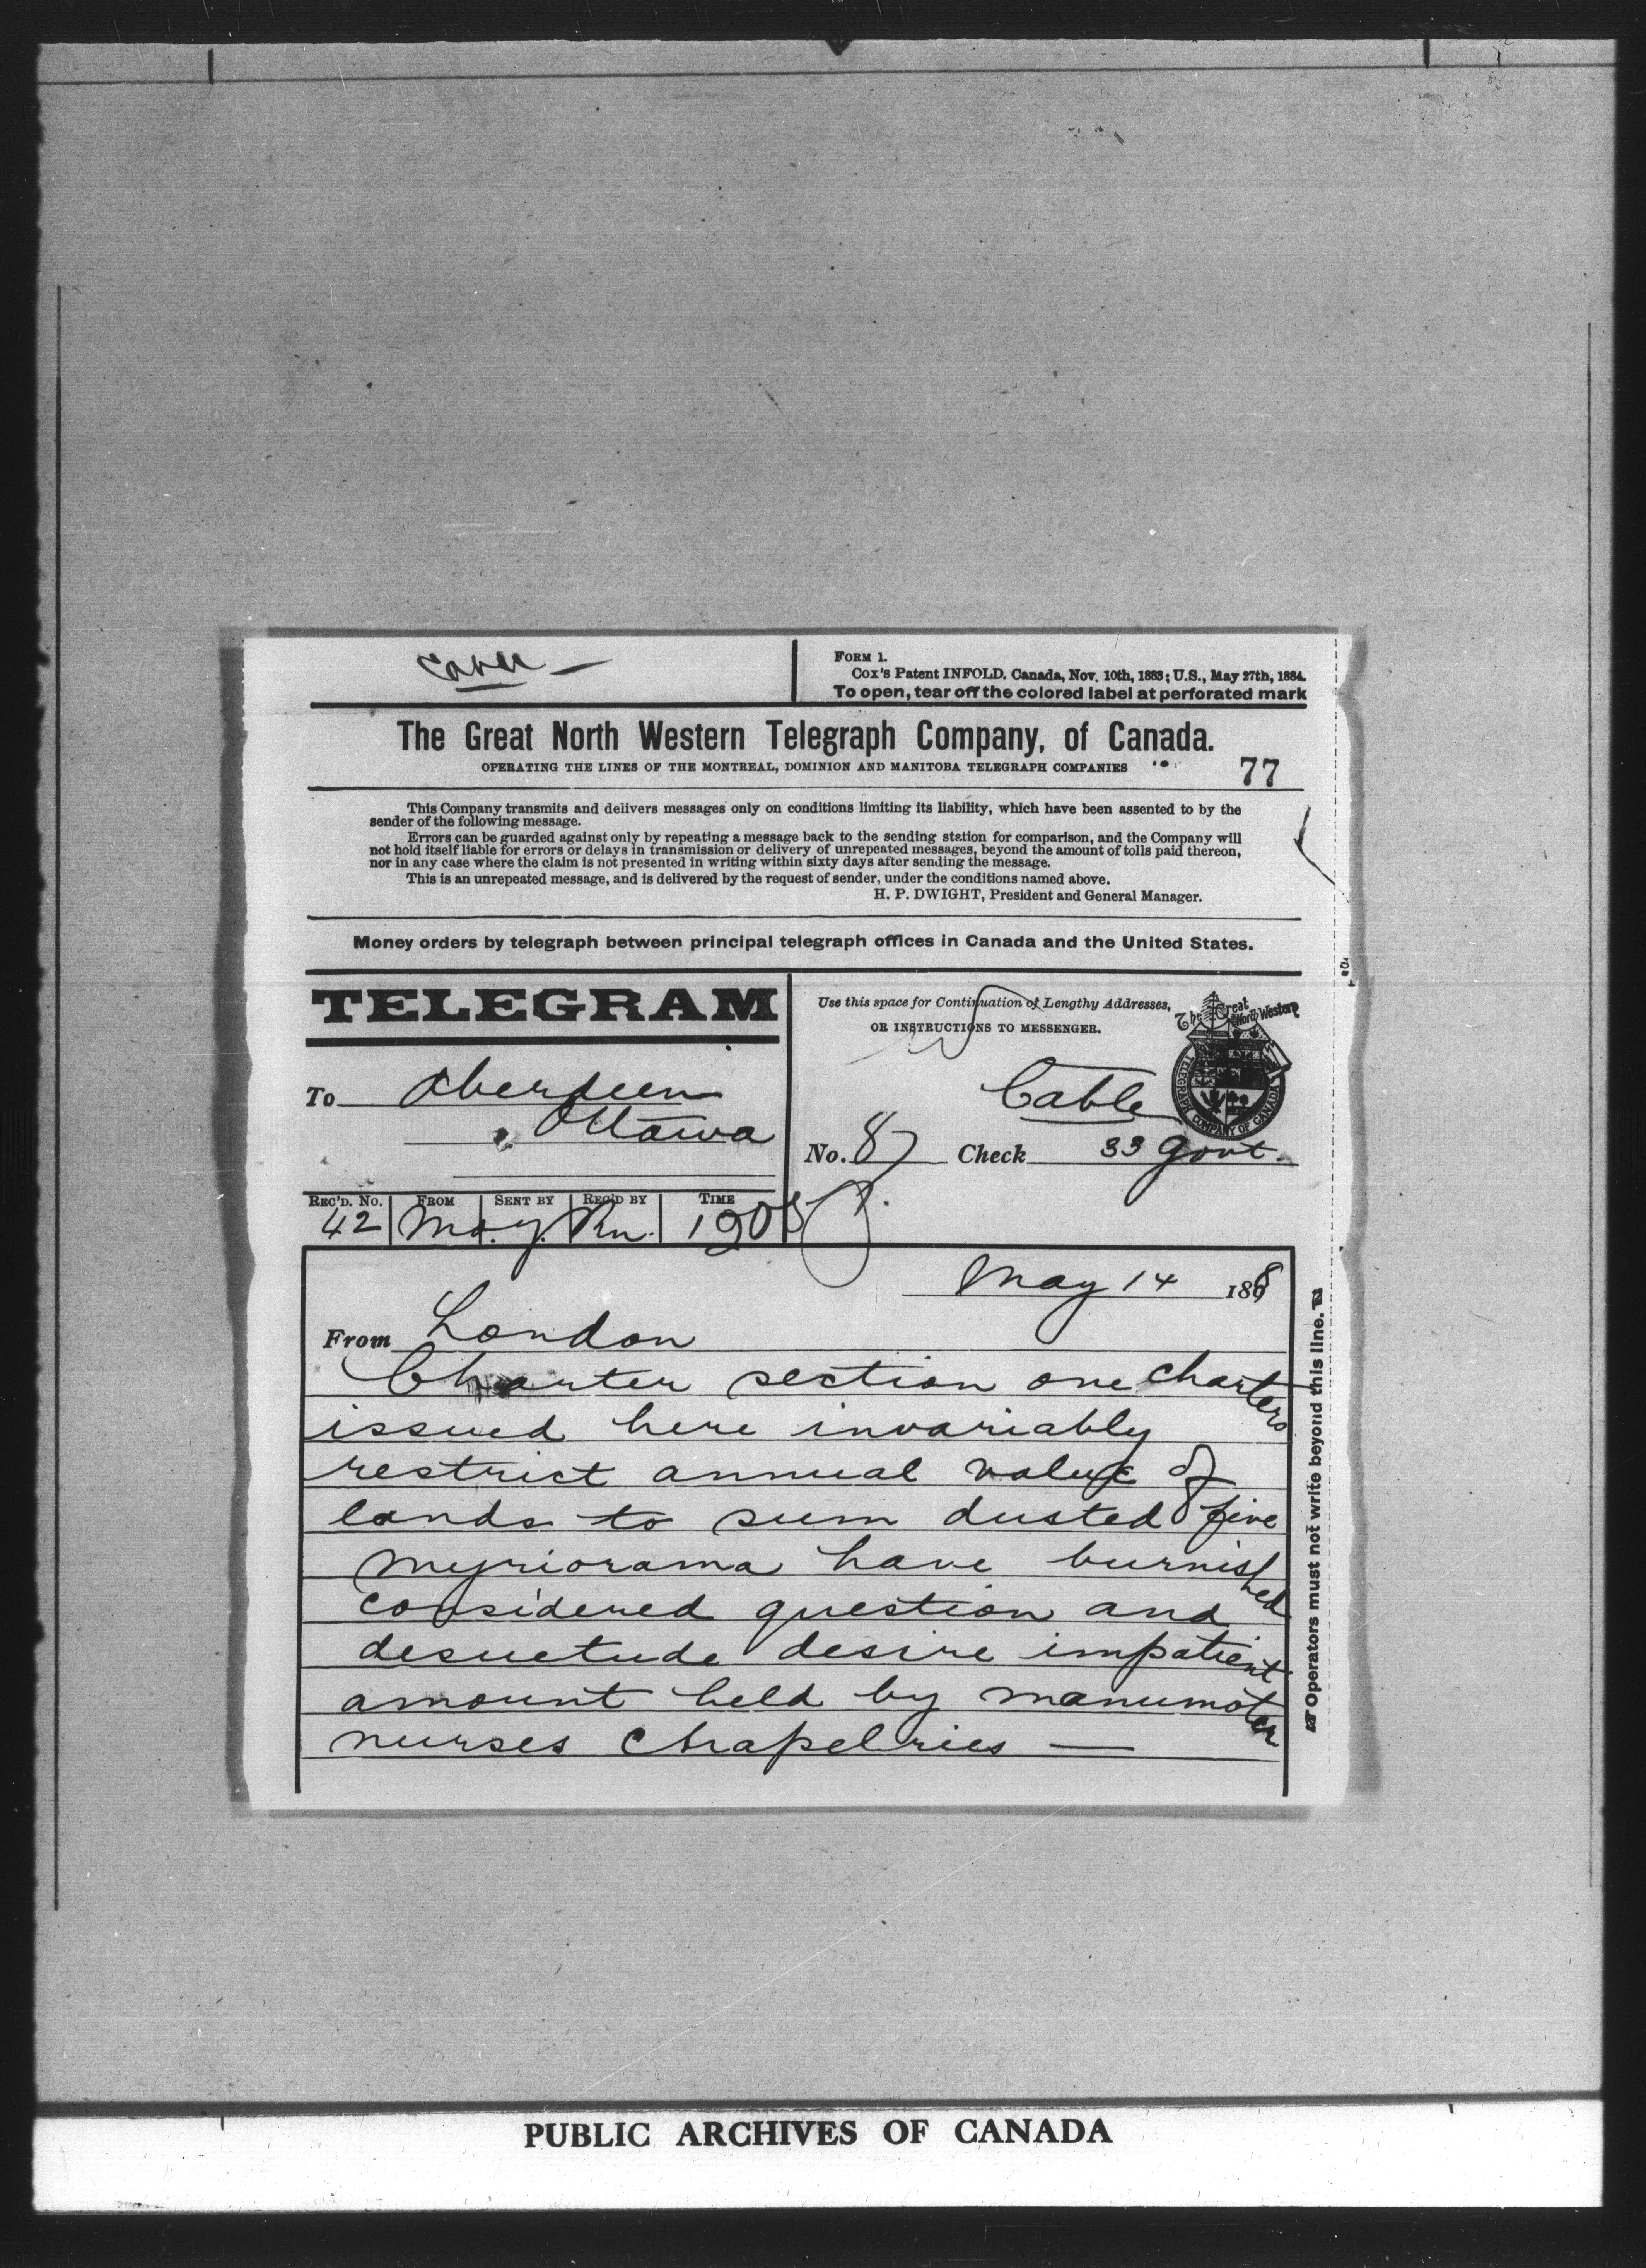 FORM 1.
Cox's Patent INFOLD. Canada, Nov. 10th, 1883; U.S., May 27th, 1884.
To open, tear off the colored label at perforated mark
The Great North Western Telegraph Company, of Canada.
OPERATING THE LINES OF THE MONTREAL, DOMINION AND MANITOBA TELEGRAPH COMPANIES
77
This Company transmits and delivers messages only on conditions limiting its liability, which have been assented to by the
sender of the following message.
Errors can be guarded against only by repeating a message back to the sending station for comparison, and the Company will
not hold itself liable for errors or delays in transmission or delivery of unrepeated messages, beyond the amount of tolls paid thereon,
nor in any case where the claim is not presented in writing within sixty days after sending the message.
This is an unrepeated message, and is delivered by the request of sender, under the conditions named above.
H. P. DWIGHT, President and General Manager.
Money orders by telegraph between principal telegraph offices in Canada and the United States.
TELEGRAM
To Aberdeen
Ottawa
Use this space for Continuation of Lengthy Addresses,
OR INSTRUCTIONS TO MESSENGER.
The Great North Western
TELEGRAPH COMPANY OF CANADA
Cable
No. 87 Check 33 Govt.
REC'D. No. FROM SENT BY REC'D BY TIME
42
May 14 188
From London
Charter section one charters
issued here invariably
restrict annual value of
lands to sum dusted five
myriorama have burnished
considered question and
desuetude desire impatient
amount held by manumoter
nurses Chapelries —
Operators must not write beyond this line.
PUBLIC ARCHIVES OF CANADA